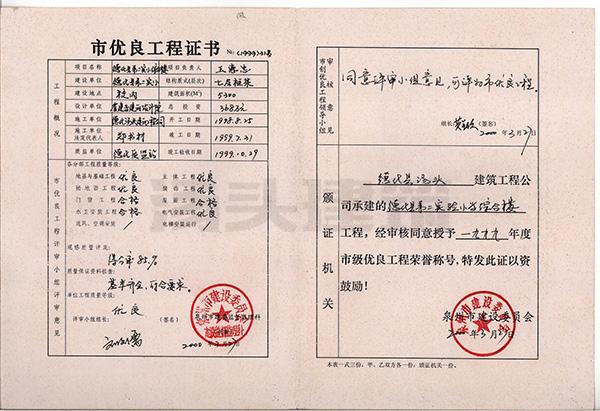 市优良工程证书 №:(1999)013号
工程概况
项目名称 德化县第二实小综合楼 项目负责人 王恚忠
建设单位 德化县第二实小 结构质式(层次) 七层框架
建设地点 校内 建筑面积(M²) 5300
设计单位 总投资 368万元
施工单位 开工日期 1998.8.25
施工单位法定代表人 郑书材 竣工日期 1999.7.31
质监单位 德化质监站 竣工验收日期 1999.10.29
市优良工程评审小组评审意见
各分部工程质量等级:
地基与基础工程 优良 主体工程 优良
楼地面工程 优良 装饰工程 优良
门窗工程 合格 屋面工程 合格
水卫安装工程 合格 电气安装工程 优良
通风、空调安装 / 电梯安装运行 /
观感质量评定:
得分率85%
质量保证资料核查:
基本齐全,符合要求。
单位工程质量等级:
优良
评审小组组长: (签名)
2000年3月27日
市创优良工程领导小组审核意见
同意评审小组意见,可评为市优良工程。
组长: (签名)
2000年3月27日
颁证机关
德化县汤头 建筑工程公
司承建的 德化县第二实验小学综合楼
工程,经审核同意授予 一九九九 年度
市级优良工程荣誉称号,特发此证以资
鼓励!
泉州市建设委员会
2000年3月27日
本表一式三份,甲、乙双方各一份;颁证机关一份。